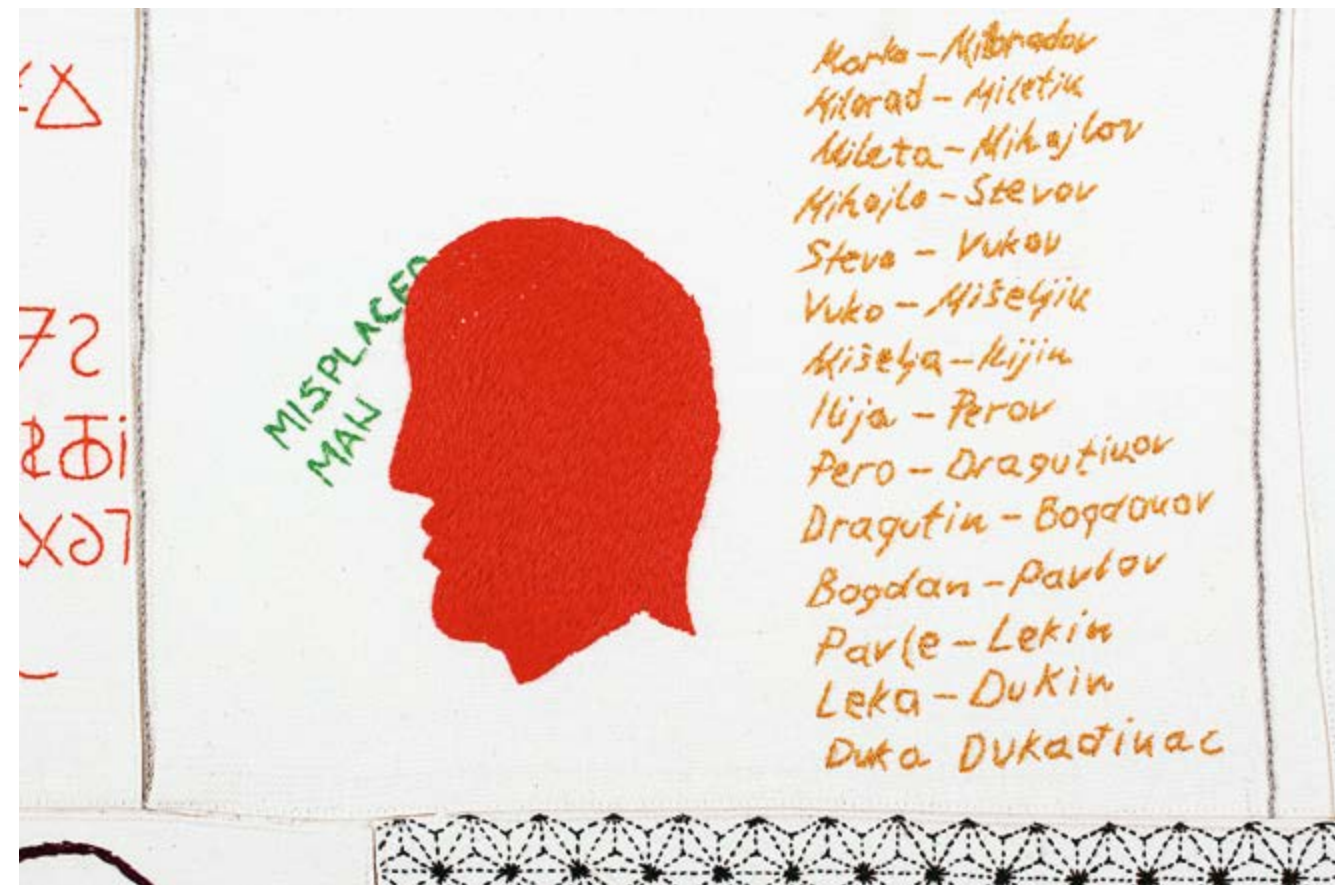 MISPLACED
MAN
Marko – Miloradov
Milorad – Miletin
Mileta – Mihajlov
Mihajlo – Stevov
Stevo – Vukov
Vuko – Mišeljin
Mišelja – Ilijin
Ilija – Perov
Pero – Dragutinov
Dragutin – Bogdanov
Bogdan – Pavlov
Pavle – Lekin
Leka – Dukin
Duka Dukađinac